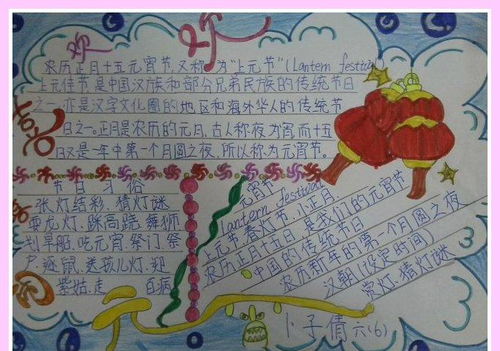 欢
农历正月十五元宵节,又称为"上元节"(Lantern festival)
上元佳节是中国汉族和部分兄弟民族的传统节日
之一,亦是汉字文化圈的地区和海外华人的传统节
日之一。正月是农历的元月,古人称夜为宵而十五
日又是一年中第一个月圆之夜,所以称为元宵节。
喜
节日习俗
张灯结彩.猜灯谜
耍龙灯.踩高跷.舞狮
划旱船.吃元宵.祭门.祭
户.逐鼠.送孩儿灯.迎
紫姑.走百病
元宵节
lantern festival
上元节春灯节.小正月
农历正月十五日是我们的元宵节
中国的传统节日
农历新年的第一个月圆之夜
汉朝(设定时间)
赏灯.猜灯谜
卜子倩六(6)